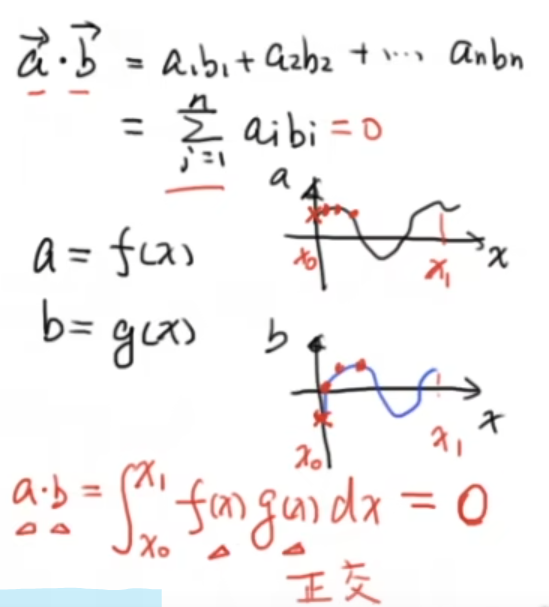 a⃗·b⃗ = a₁b₁ + a₂b₂ + ⋯ aₙbₙ
= ∑ᵢ₌₁ⁿ aᵢbᵢ = 0
a
x₀ x₁ x
a = f(x)
b = g(x)
b
x₀ x₁ x
a·b = ∫ₓ₀ˣ¹ f(x) g(x) dx = 0
正交